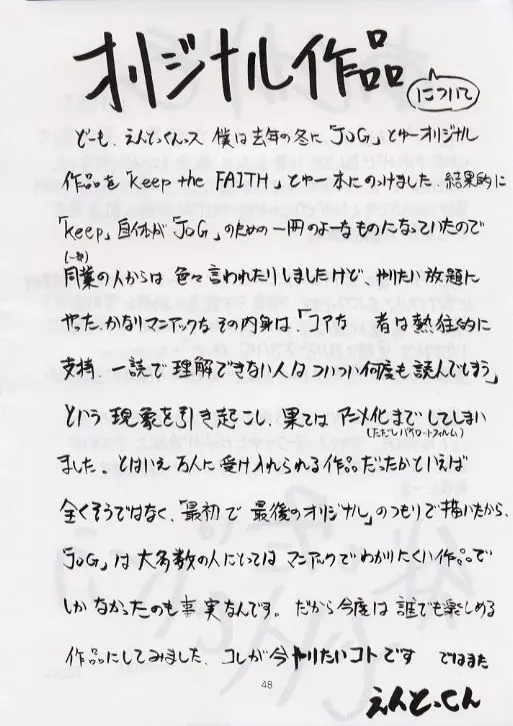 オリジナル作品
について
どーも、えんどっくんっス 僕は去年の冬に「JoG」とゆーオリジナル
作品を「Keep the FAITH」とゆー本にのっけました。結果的に
「Keep」自体が「JoG」のための一冊のよーなものになっていたので
(一部)
同業の人からは 色々言われたりしましたけど、やりたい放題に
やった、かなりマニアックな その内身は、「コアな 者は熱狂的に
支持、一読で理解できない人はついつい何度も読んでしまう」
という 現象を引き起こし、果ては アニメ化までしてしまい
(ただしパイロットフィルム)
ました。とはいえ万人に受け入れられる作品だったかといえば
全くそうではなく、「最初で 最後のオリジナル」のつもりで描いたから、
「JoG」は大多数の人にとっては マニアックでわかりにくい作品で
しかなかったのも事実なんです。だから今度は 誰でも楽しめる
作品にしてみました、コレが今やりたいコトです ではまた
48